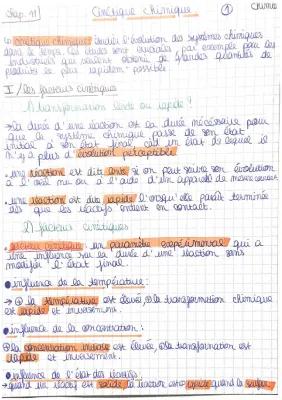 Chap. 11
Cinétique chimique
1
Chimie
La cinétique chimique étudie l'évolution des systèmes chimiques
dans le temps. Ces études sont cruciales par exemple pour les
industriels qui veulent obtenir de grandes quantités de
produits le plus rapidement possible
I / Les facteurs cinétiques
1) transformation lente ou rapide ?
→ la durée d'une réaction est la durée nécessaire pour
que le système chimique passe de son état
initial à son état final, càd un état de lequel il
n'y a plus d'évolution perceptible.
• une réaction est dit lente si on peut suivre son évolution
à l'œil nu ou à l'aide d'un appareil de mesure
• une réaction est dite rapide lorsqu'elle paraît terminée
dès que les réactifs entrent en contact.
2) facteurs cinétiques
facteur cinétique = un paramètre expérimental qui a
une influence sur la durée d'une réaction sans
modifier l'état final
• influence de la température :
→ la température est élevée, la transformation chimique
est rapide et inversement.
• influence de la concentration :
la concentration initiale est élevée, la transformation est
rapide et inversement.
• influence de l'état des réactifs :
→ quand un réactif est solide la réaction est rapide quand la